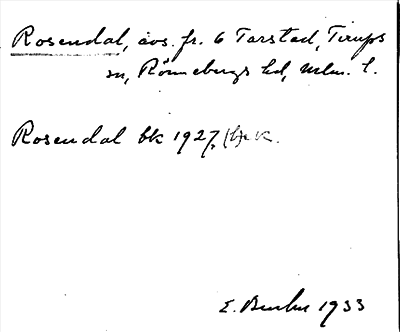 Rosendal, avs. fr. 6 Tarstad, Tirups
sn, Rönnebergs hd, Mlm. l.
Rosendal bk 1927,
E. 1933